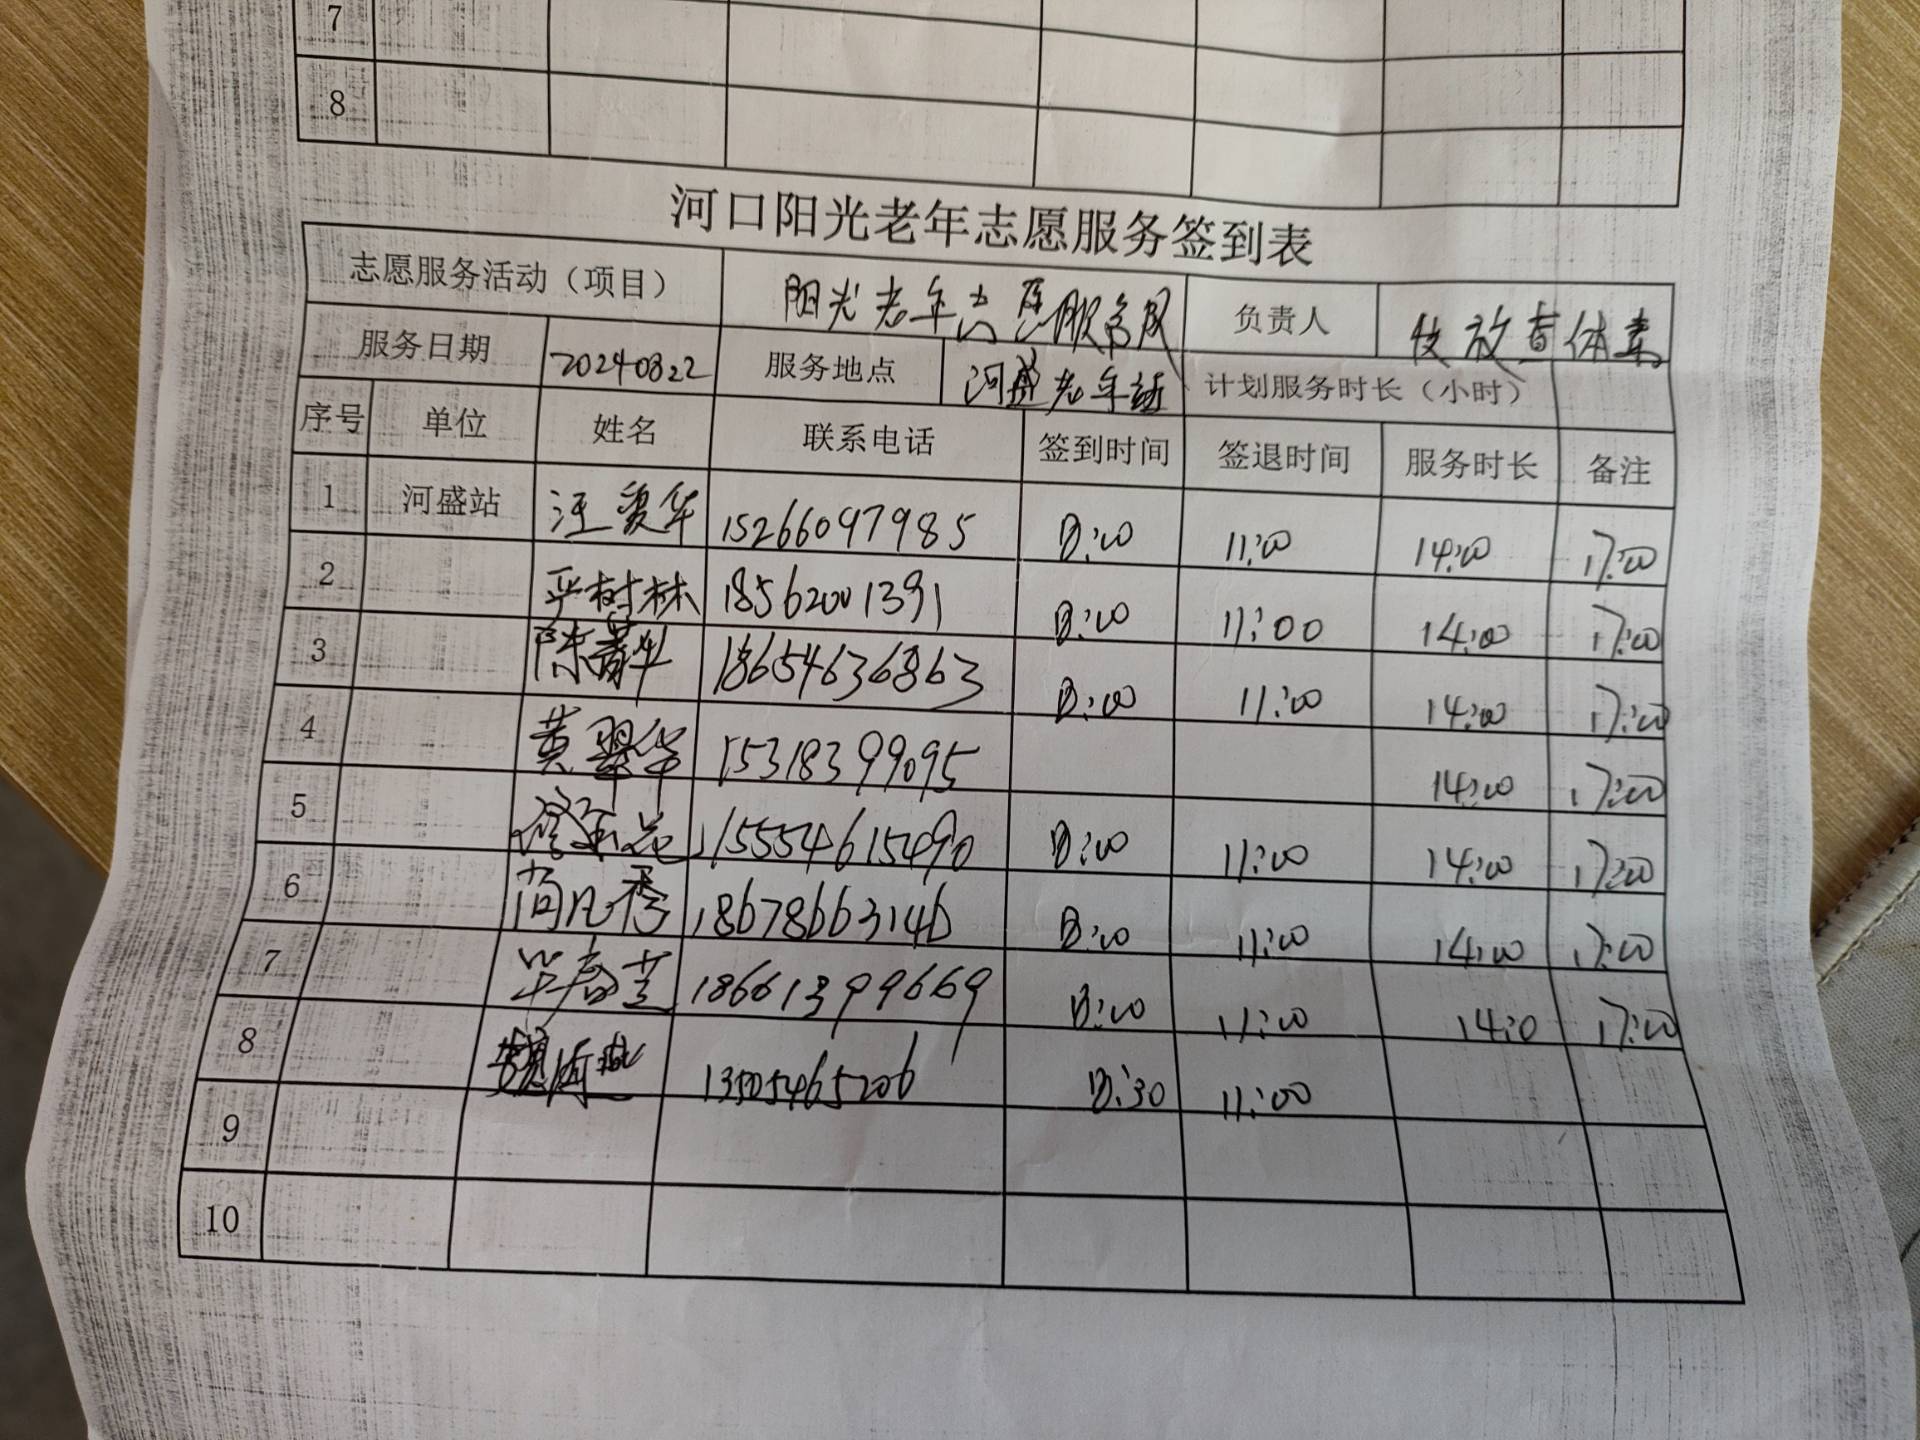 7
8
河口阳光老年志愿服务签到表
志愿服务活动（项目） 阳光老年志愿服务队 负责人
服务日期 20240822 服务地点 河盛老年站 计划服务时长（小时）
序号 单位 姓名 联系电话 签到时间 签退时间 服务时长 备注
1 河盛站 汪爱华 15266097985 8:00 11:00 14:00 17:00
2 严树林 18562001391 8:00 11:00 14:00 17:00
3 陈 华 18654636863 8:00 11:00 14:00 17:00
4 黄翠华 15318399095 14:00 17:00
5 15554615490 8:00 11:00 14:00 17:00
6 尚凡秀 18678663146 8:00 11:00 14:00 17:00
7 毕春芝 18661399669 8:00 11:00 14:0 17:00
8 13505465206 8:30 11:00
9
10